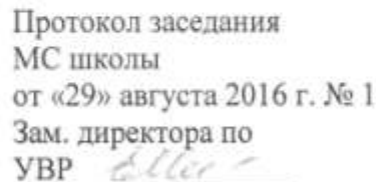 Протокол заседания
МС школы
от «29» августа 2016 г. № 1
Зам. директора по
УВР